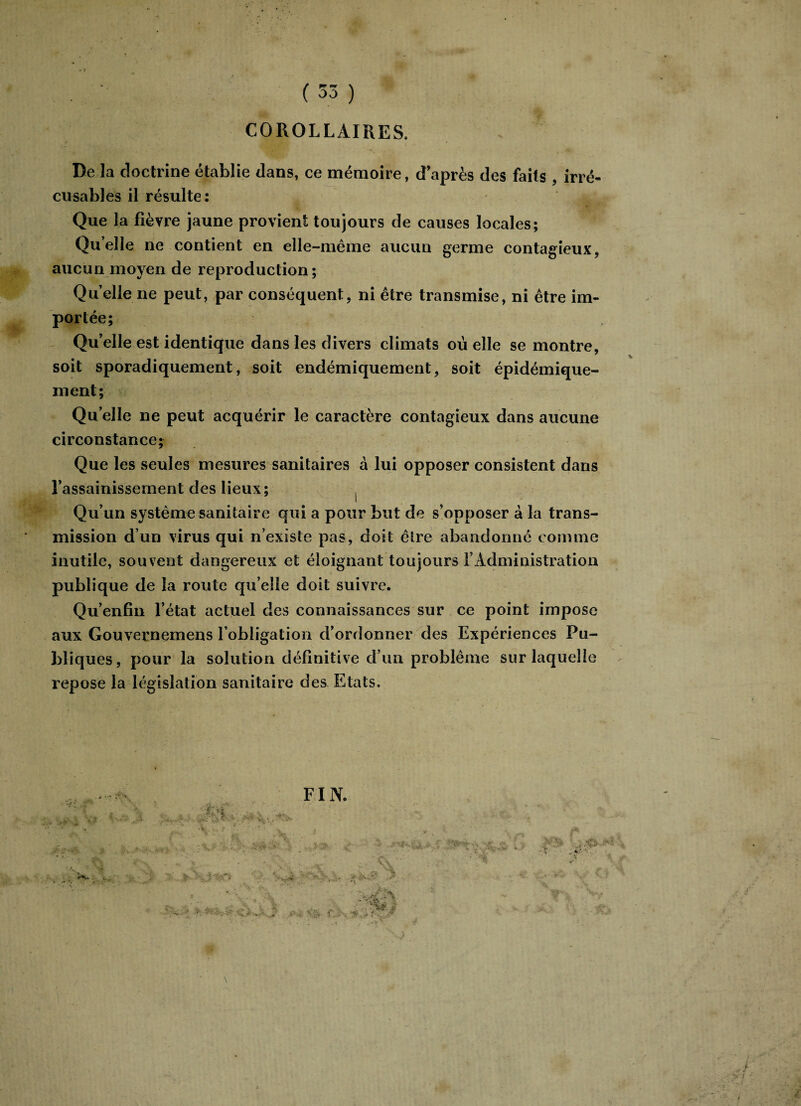 ( 33 )
COROLLAIRES.
De la doctrine établie dans, ce mémoire, d'après des faits , irré-
cusables il résulte:
Que la fièvre jaune provient toujours de causes locales;
Qu'elle ne contient en elle-même aucun germe contagieux,
aucun moyen de reproduction;
Qu'elle ne peut, par conséquent, ni être transmise, ni être im-
portée;
Qu'elle est identique dans les divers climats où elle se montre,
soit sporadiquement, soit endémiquement, soit épidémique-
ment;
Qu'elle ne peut acquérir le caractère contagieux dans aucune
circonstance;
Que les seules mesures sanitaires à lui opposer consistent dans
l'assainissement des lieux;
Qu'un système sanitaire qui a pour but de s'opposer à la trans-
mission d'un virus qui n'existe pas, doit être abandonné comme
inutile, souvent dangereux et éloignant toujours l'Administration
publique de la route qu'elle doit suivre.
Qu'enfin l'état actuel des connaissances sur ce point impose
aux Gouvernemens l'obligation d'ordonner des Expériences Pu-
bliques, pour la solution définitive d'un problême sur laquelle
repose la législation sanitaire des Etats.
FIN.